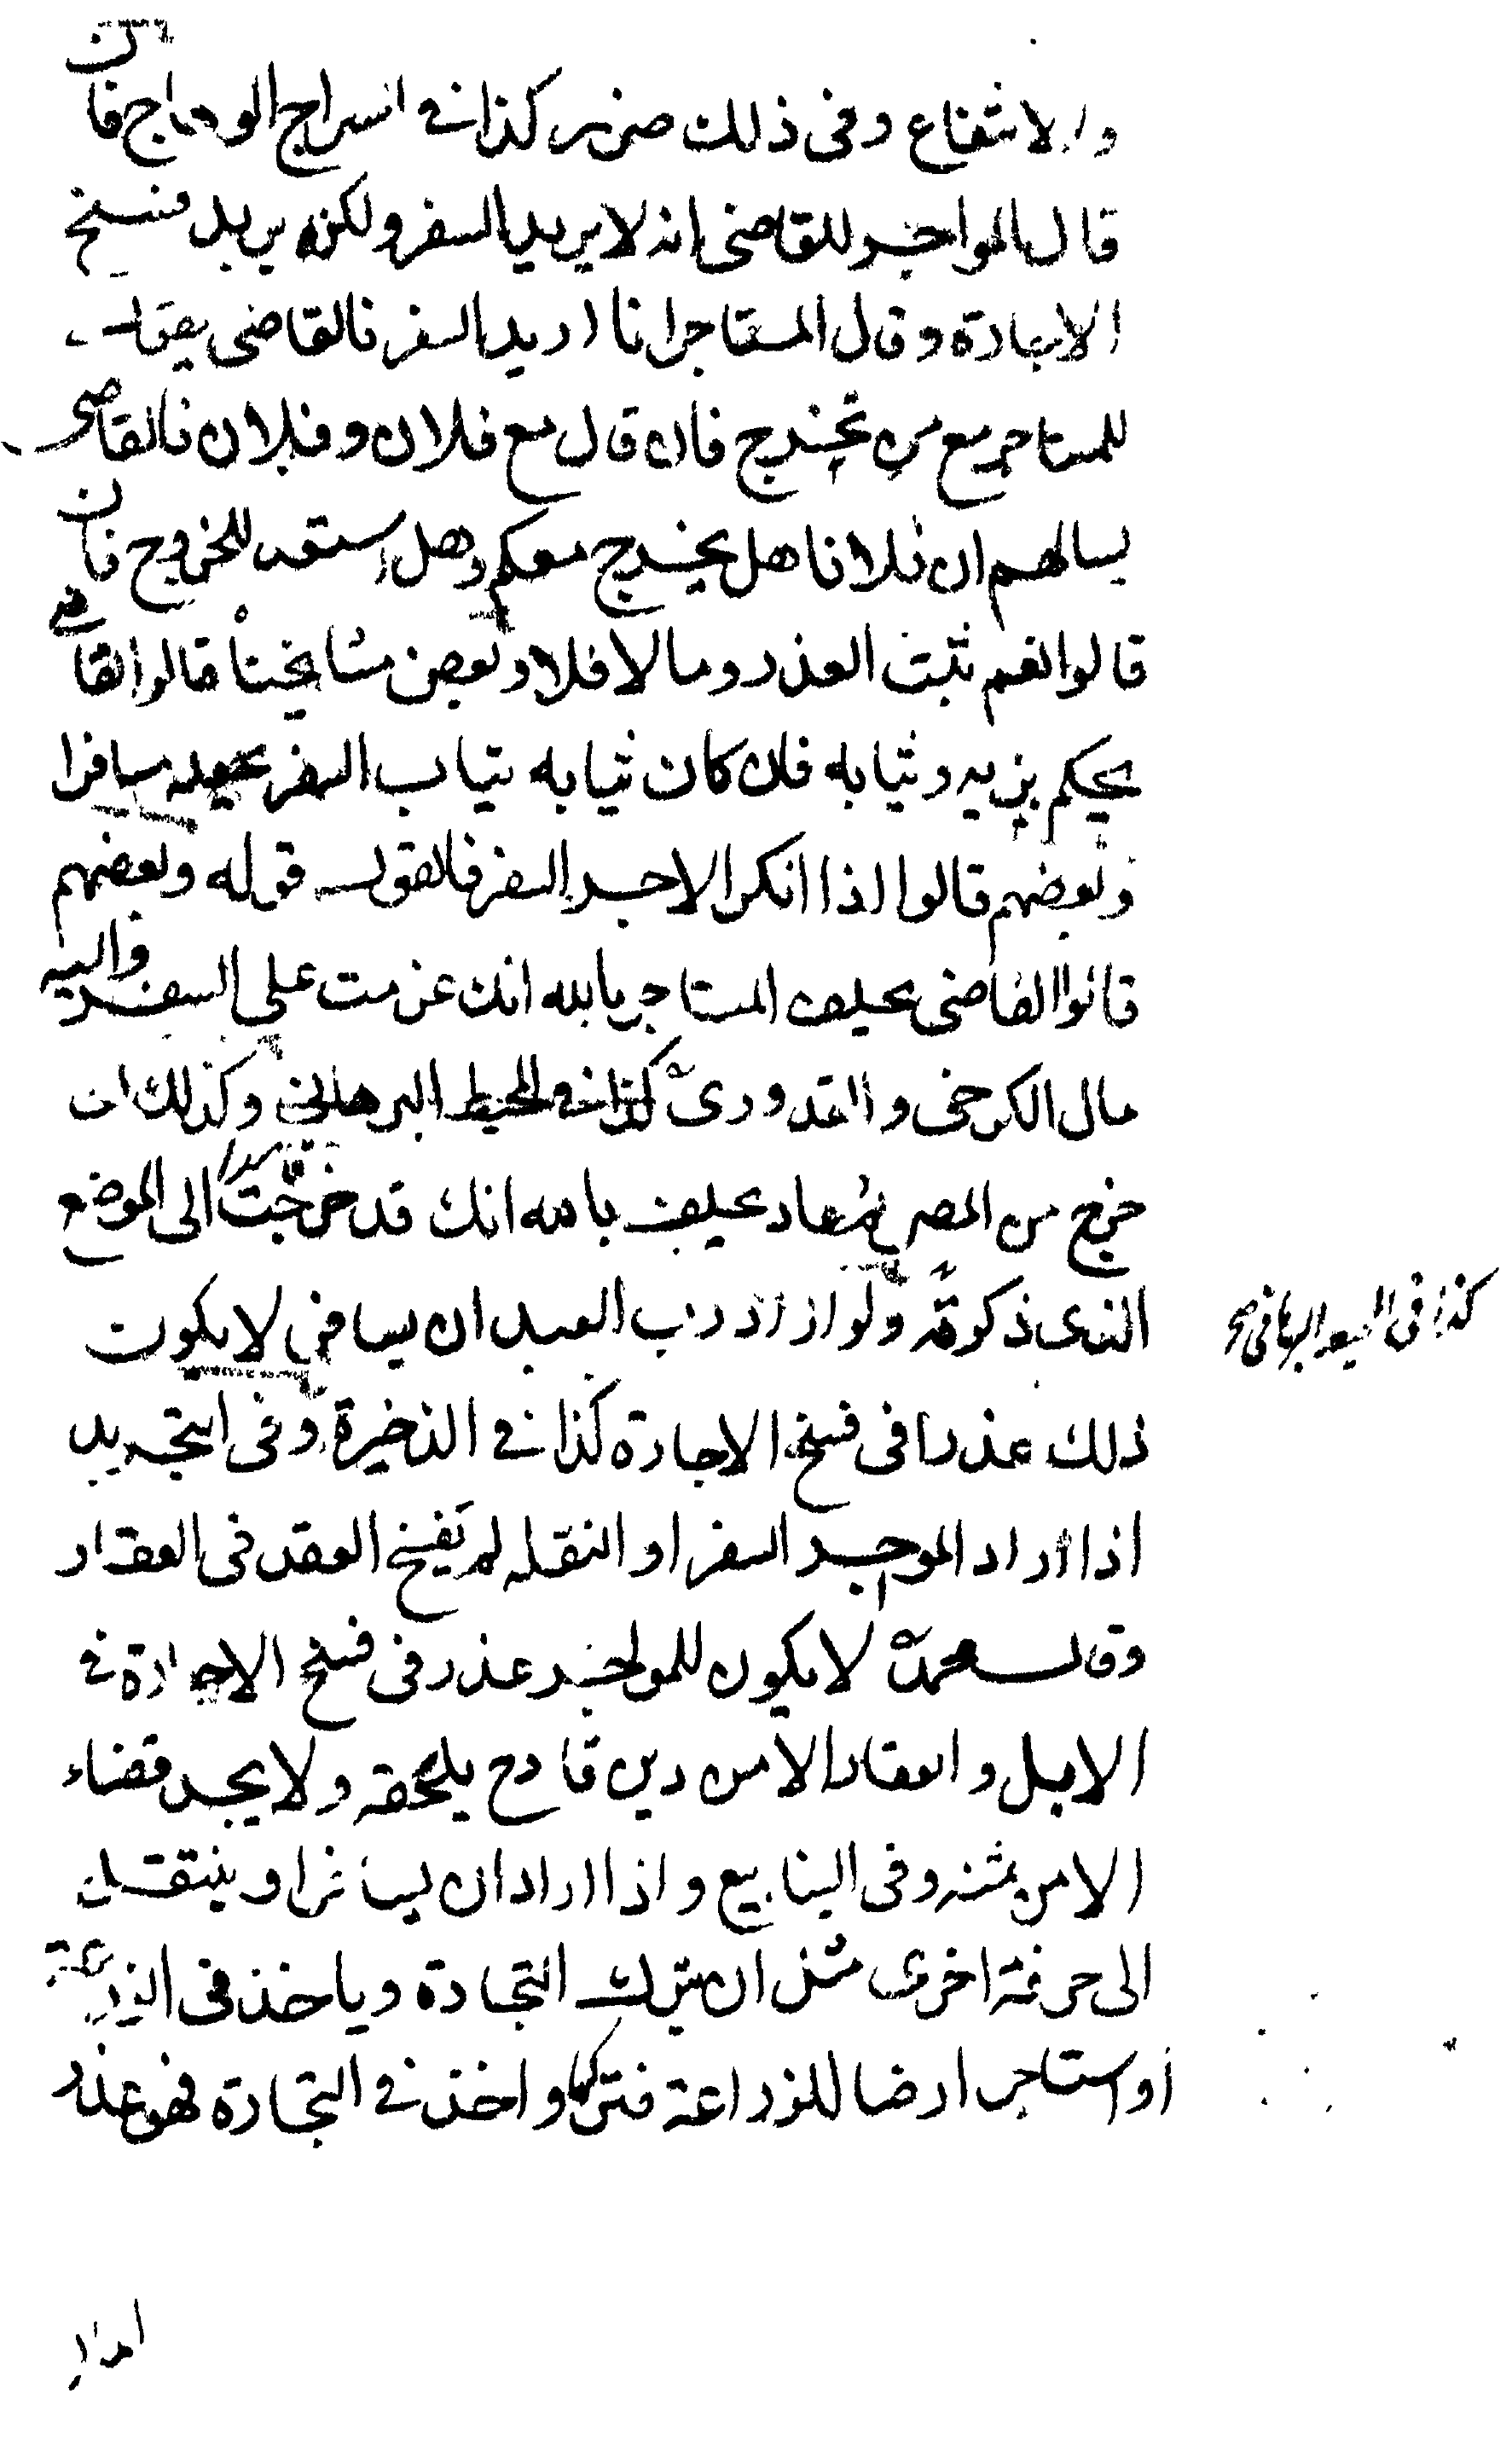 والانتفاع وفى ذلك ضرر كذا فى السراج الوهاج فان
قال المواجر للقاضى انه لا يريد السفر ولكنه يريد فسخ
الاجارة وقال المستاجر انا اريد السفر فالقاضى يقول
للمستاجر مع من تخرج فان قال مع فلان وفلان فالقاضى
يسالهم ان فلانا هل يخرج معكم وهل استعد للخروج فان
قالوا نعم ثبت العذر وما لا فلا وبعض مشايخنا قالوا القاضى
يحكم بزيه وثيابه فان كان ثيابه ثياب السفر يجعله مسافرا
وبعضهم قالوا اذا انكر الاجر السفر فالقول قوله وبعضهم
قالوا القاضى يحلف المستاجر بالله انك عزمت على السفر واليه
مال الكرخى والقدورى كذا فى المحيط البرهانى وكذلك ان
خرج من المصر ثم عاد يحلف بالله انك قد خرجت الى الموضع
الذى ذكرت ولو اراد رب العبد ان يسافر لا يكون
كذا فى المحيط البرهانى صح
ذلك عذرا فى فسخ الاجارة كذا فى الذخيرة وفى التجريد
اذا اراد الموجر السفر او النقله لم يفسخ العقد فى العقار
وقال محمد لا يكون للمواجر عذر فى فسخ الاجارة فى
الابل والعقار الا من دين قادح يلحقه ولا يجد قضاء
الا من ثمنه وفى الينابيع واذا اراد ان يسافر او ينتقل
الى حرفة اخرى مثل ان يترك التجارة وياخذ فى الزراعة
او استاجر ارضا للزراعة فتركها واخذ فى التجارة فهو عذر